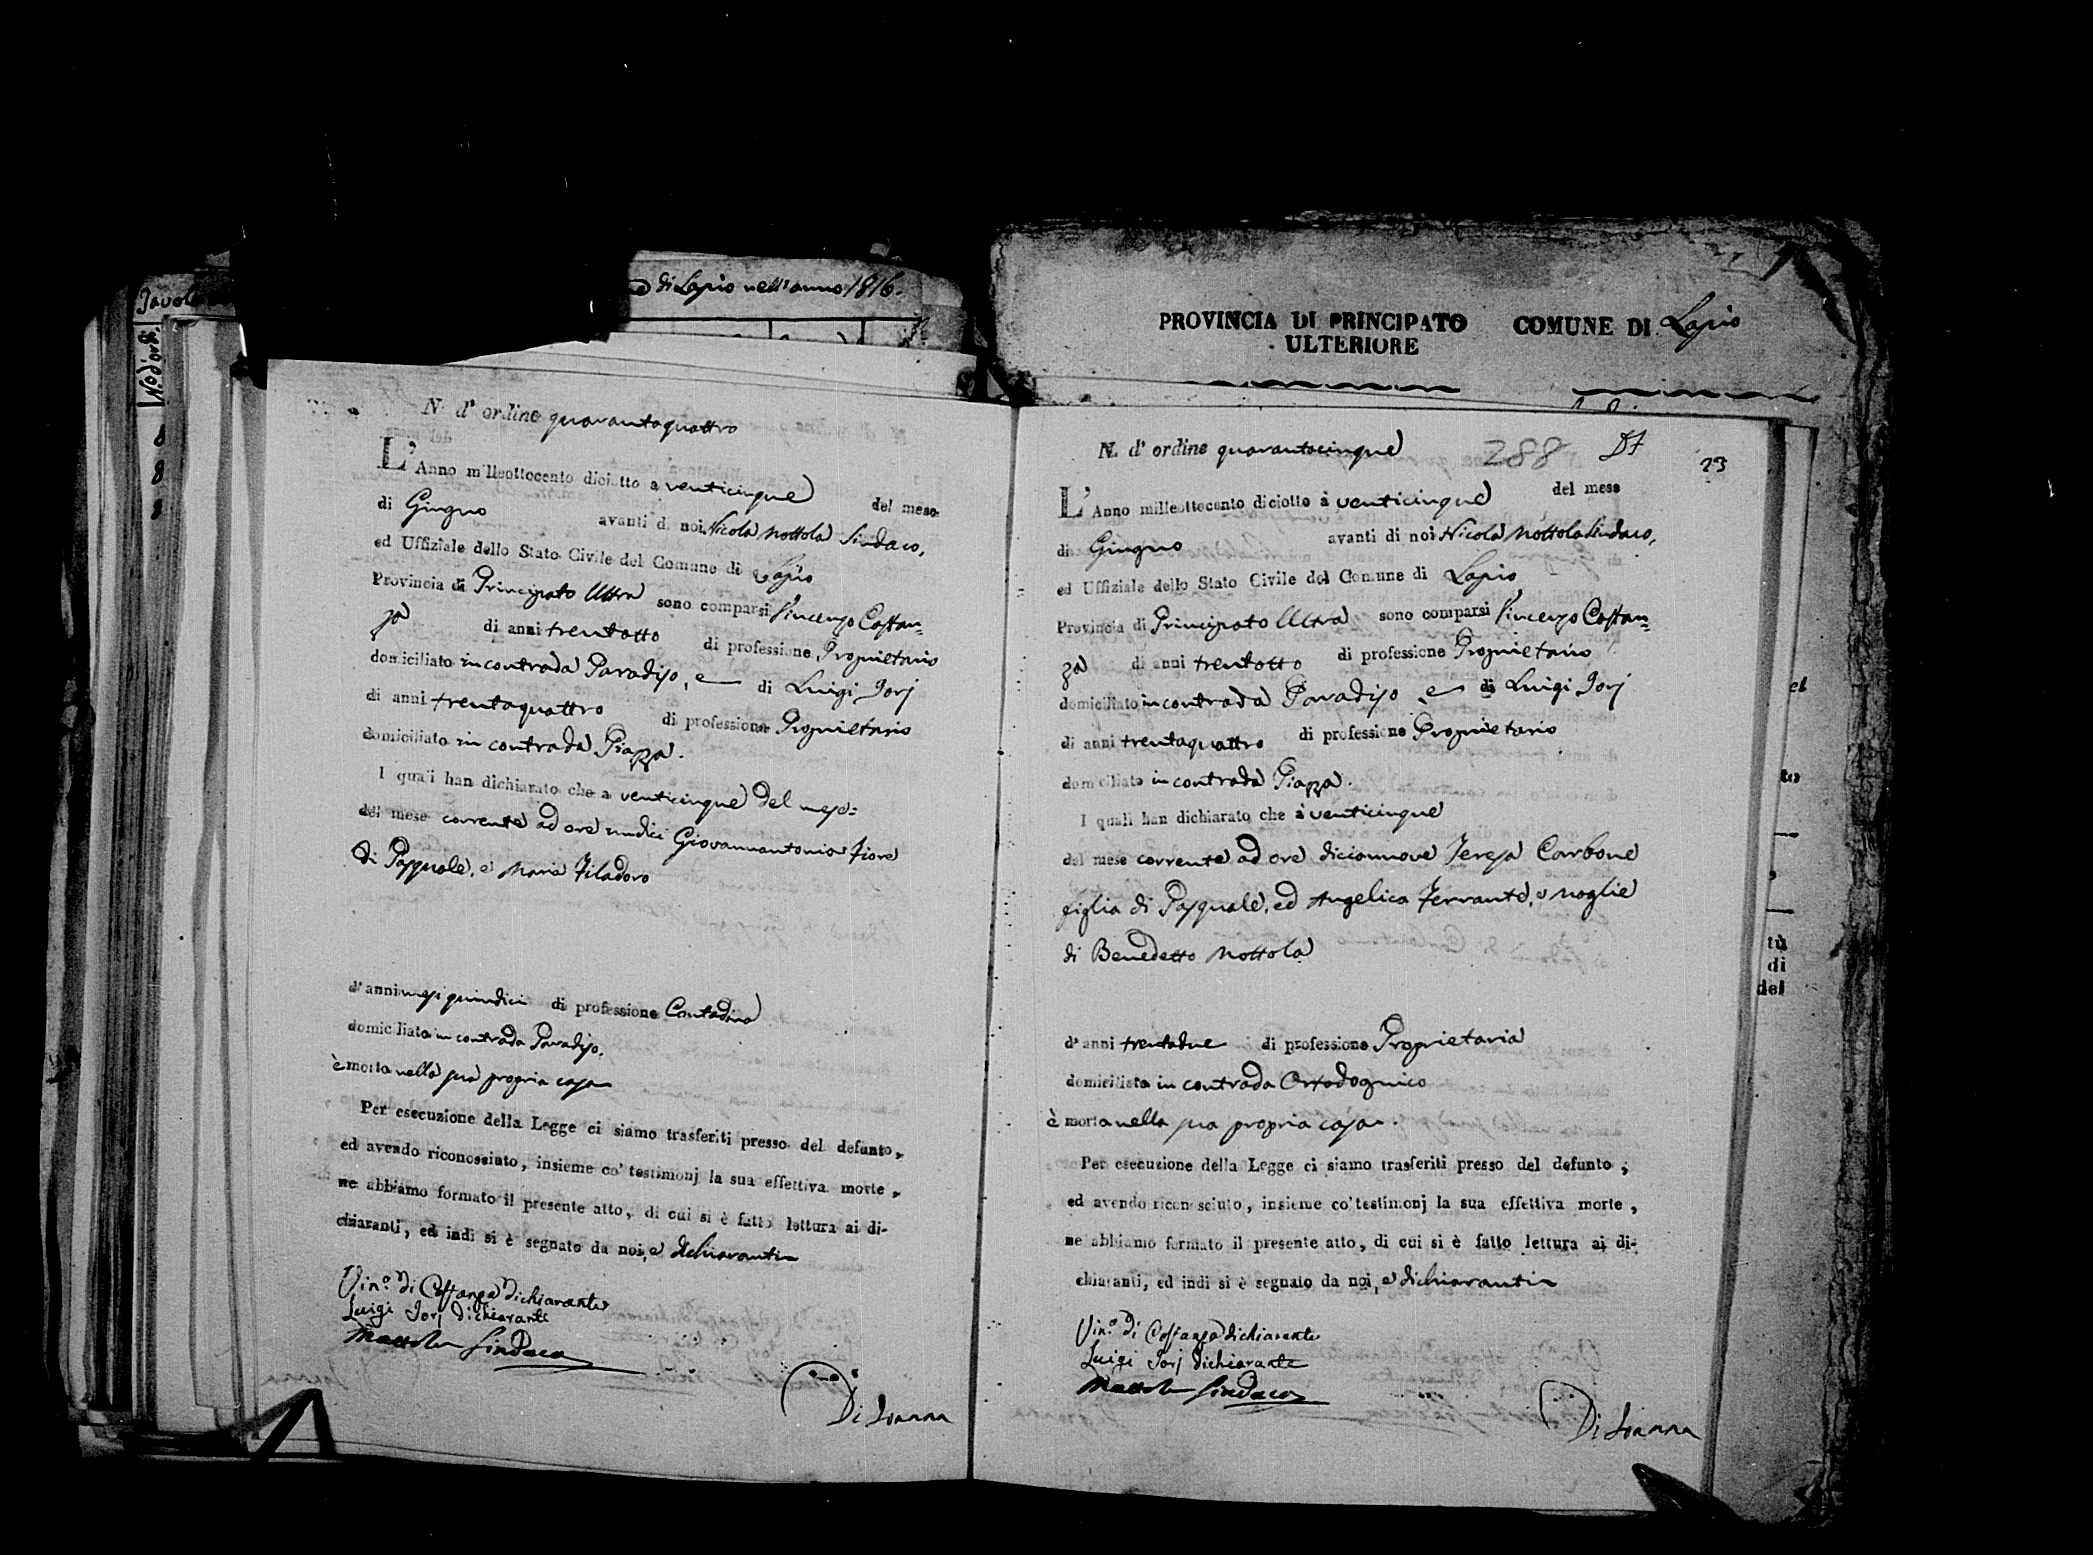 di Lapio nell'anno 1816.
N.o d'ord.
8
8
PROVINCIA DI PRINCIPATO ULTERIORE
COMUNE DI Lapio
N. d' ordine quarantaquattro
L'Anno milleottocento diciotto a venticinque del mese
di Giugno avanti di noi Nicola Nottola Sindaco,
ed Uffiziale dello Stato Civile del Comune di Lapio
Provincia di Principato Ultra sono comparsi Vincenzo Costan=
za di anni trentotto di professione Proprietario
domiciliato in contrada Paradiso, e di Luigi Jorj
di anni trentaquattro di professione Proprietario
domiciliato in contrada Piazza.
I quali han dichiarato che a venticinque del mese
del mese corrente ad ore undici Giovannantonio Fiore
di Pasquale, e Maria Filadoro
d'anni mesi quindici di professione Contadino
domiciliato in contrada Paradiso.
è morto nella sua propria casa
Per esecuzione della Legge ci siamo trasferiti presso del defunto,
ed avendo riconosciuto, insieme co' testimonj la sua effettiva morte,
ne abbiamo formato il presente atto, di cui si è fatto lettura ai di-
chiaranti, ed indi si è segnato da noi, e dichiaranti
Vin.o di Costanza dichiarante
Luigi Jorj dichiarante
Nottola Sindaco
Di Joanna
N. d' ordine quarantacinque
288
23
L'Anno milleottocento diciotto à venticinque del mese
di Giugno avanti di noi Nicola Nottola Sindaco,
ed Uffiziale dello Stato Civile del Comune di Lapio
Provincia di Principato Ultra sono comparsi Vincenzo Costan=
za di anni trentotto di professione Proprietario
domiciliato in contrada Paradiso e di Luigi Jorj
di anni trentaquattro di professione Proprietario
domiciliato in contrada Piazza.
I quali han dichiarato che à venticinque
del mese corrente ad ore diciannove Teresa Carbone
figlia di Pasquale, ed Angelica Ferrante, e moglie
di Benedetto Nottola
d'anni trentadue di professione Proprietaria
domiciliata in contrada Ortodognico
è morta nella sua propria casa.
Per esecuzione della Legge ci siamo trasferiti presso del defunto;
ed avendo riconosciuto, insieme co' testimonj la sua effettiva morte,
ne abbiamo formato il presente atto, di cui si è fatto lettura ai di-
chiaranti, ed indi si è segnato da noi, e dichiaranti
Vin.o di Costanza dichiarante
Luigi Jorj dichiarante
Nottola Sindaco
Di Joanna
to
tù
di
del